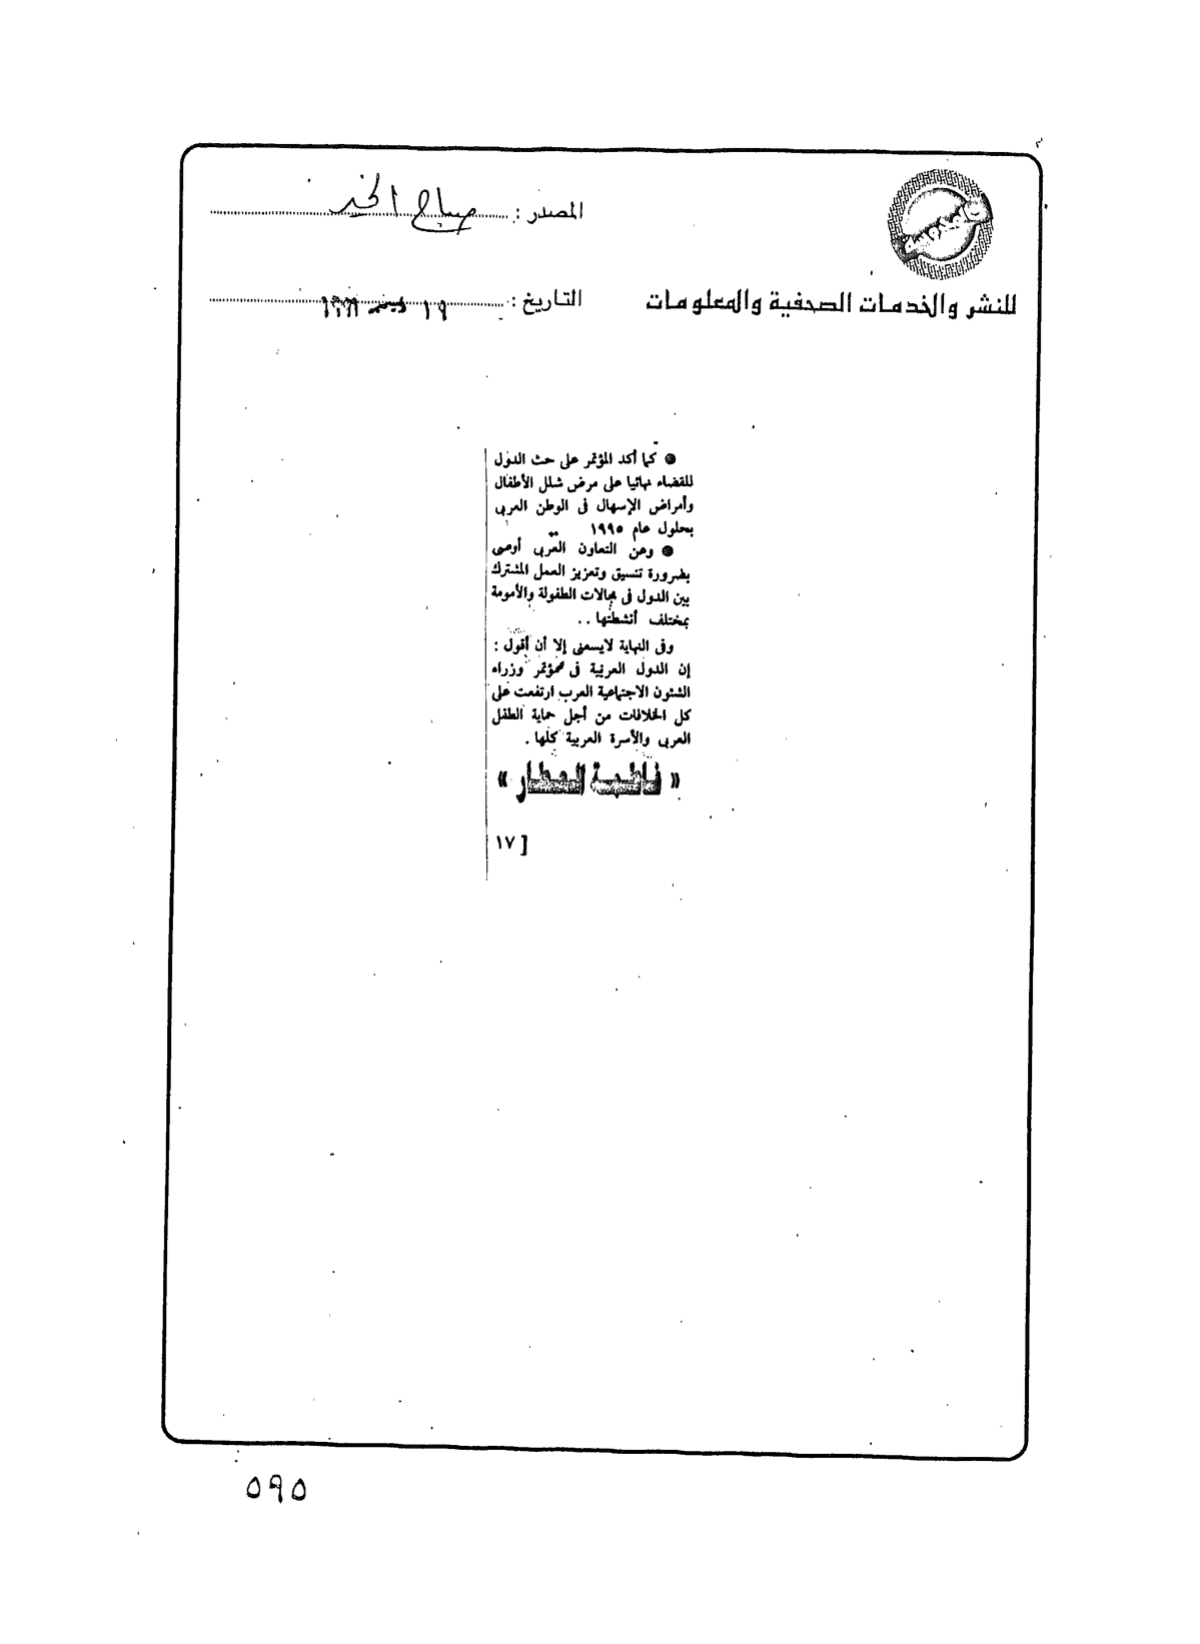 المصدر : صباح الخير
للنشر والخدمات الصحفية والمعلومات
التاريخ : ١٩ ديسمبر
● كما أكد المؤتمر على حث الدول
للقضاء نهائيا على مرض شلل الأطفال
وأمراض الإسهال فى الوطن العربى
بحلول عام ١٩٩٥
● وعن التعاون العربى أوصى
بضرورة تنسيق وتعزيز العمل المشترك
بين الدول فى مجالات الطفولة والأمومة
بمختلف أنشطتها ..
وفى النهاية لايسعنى إلا أن أقول :
إن الدول العربية فى مؤتمر وزراء
الشئون الاجتماعية العرب ارتفعت على
كل الخلافات من أجل حماية الطفل
العربى والأسرة العربية كلها .
« فاطمة العطار »
[ ١٧
٥٩٥